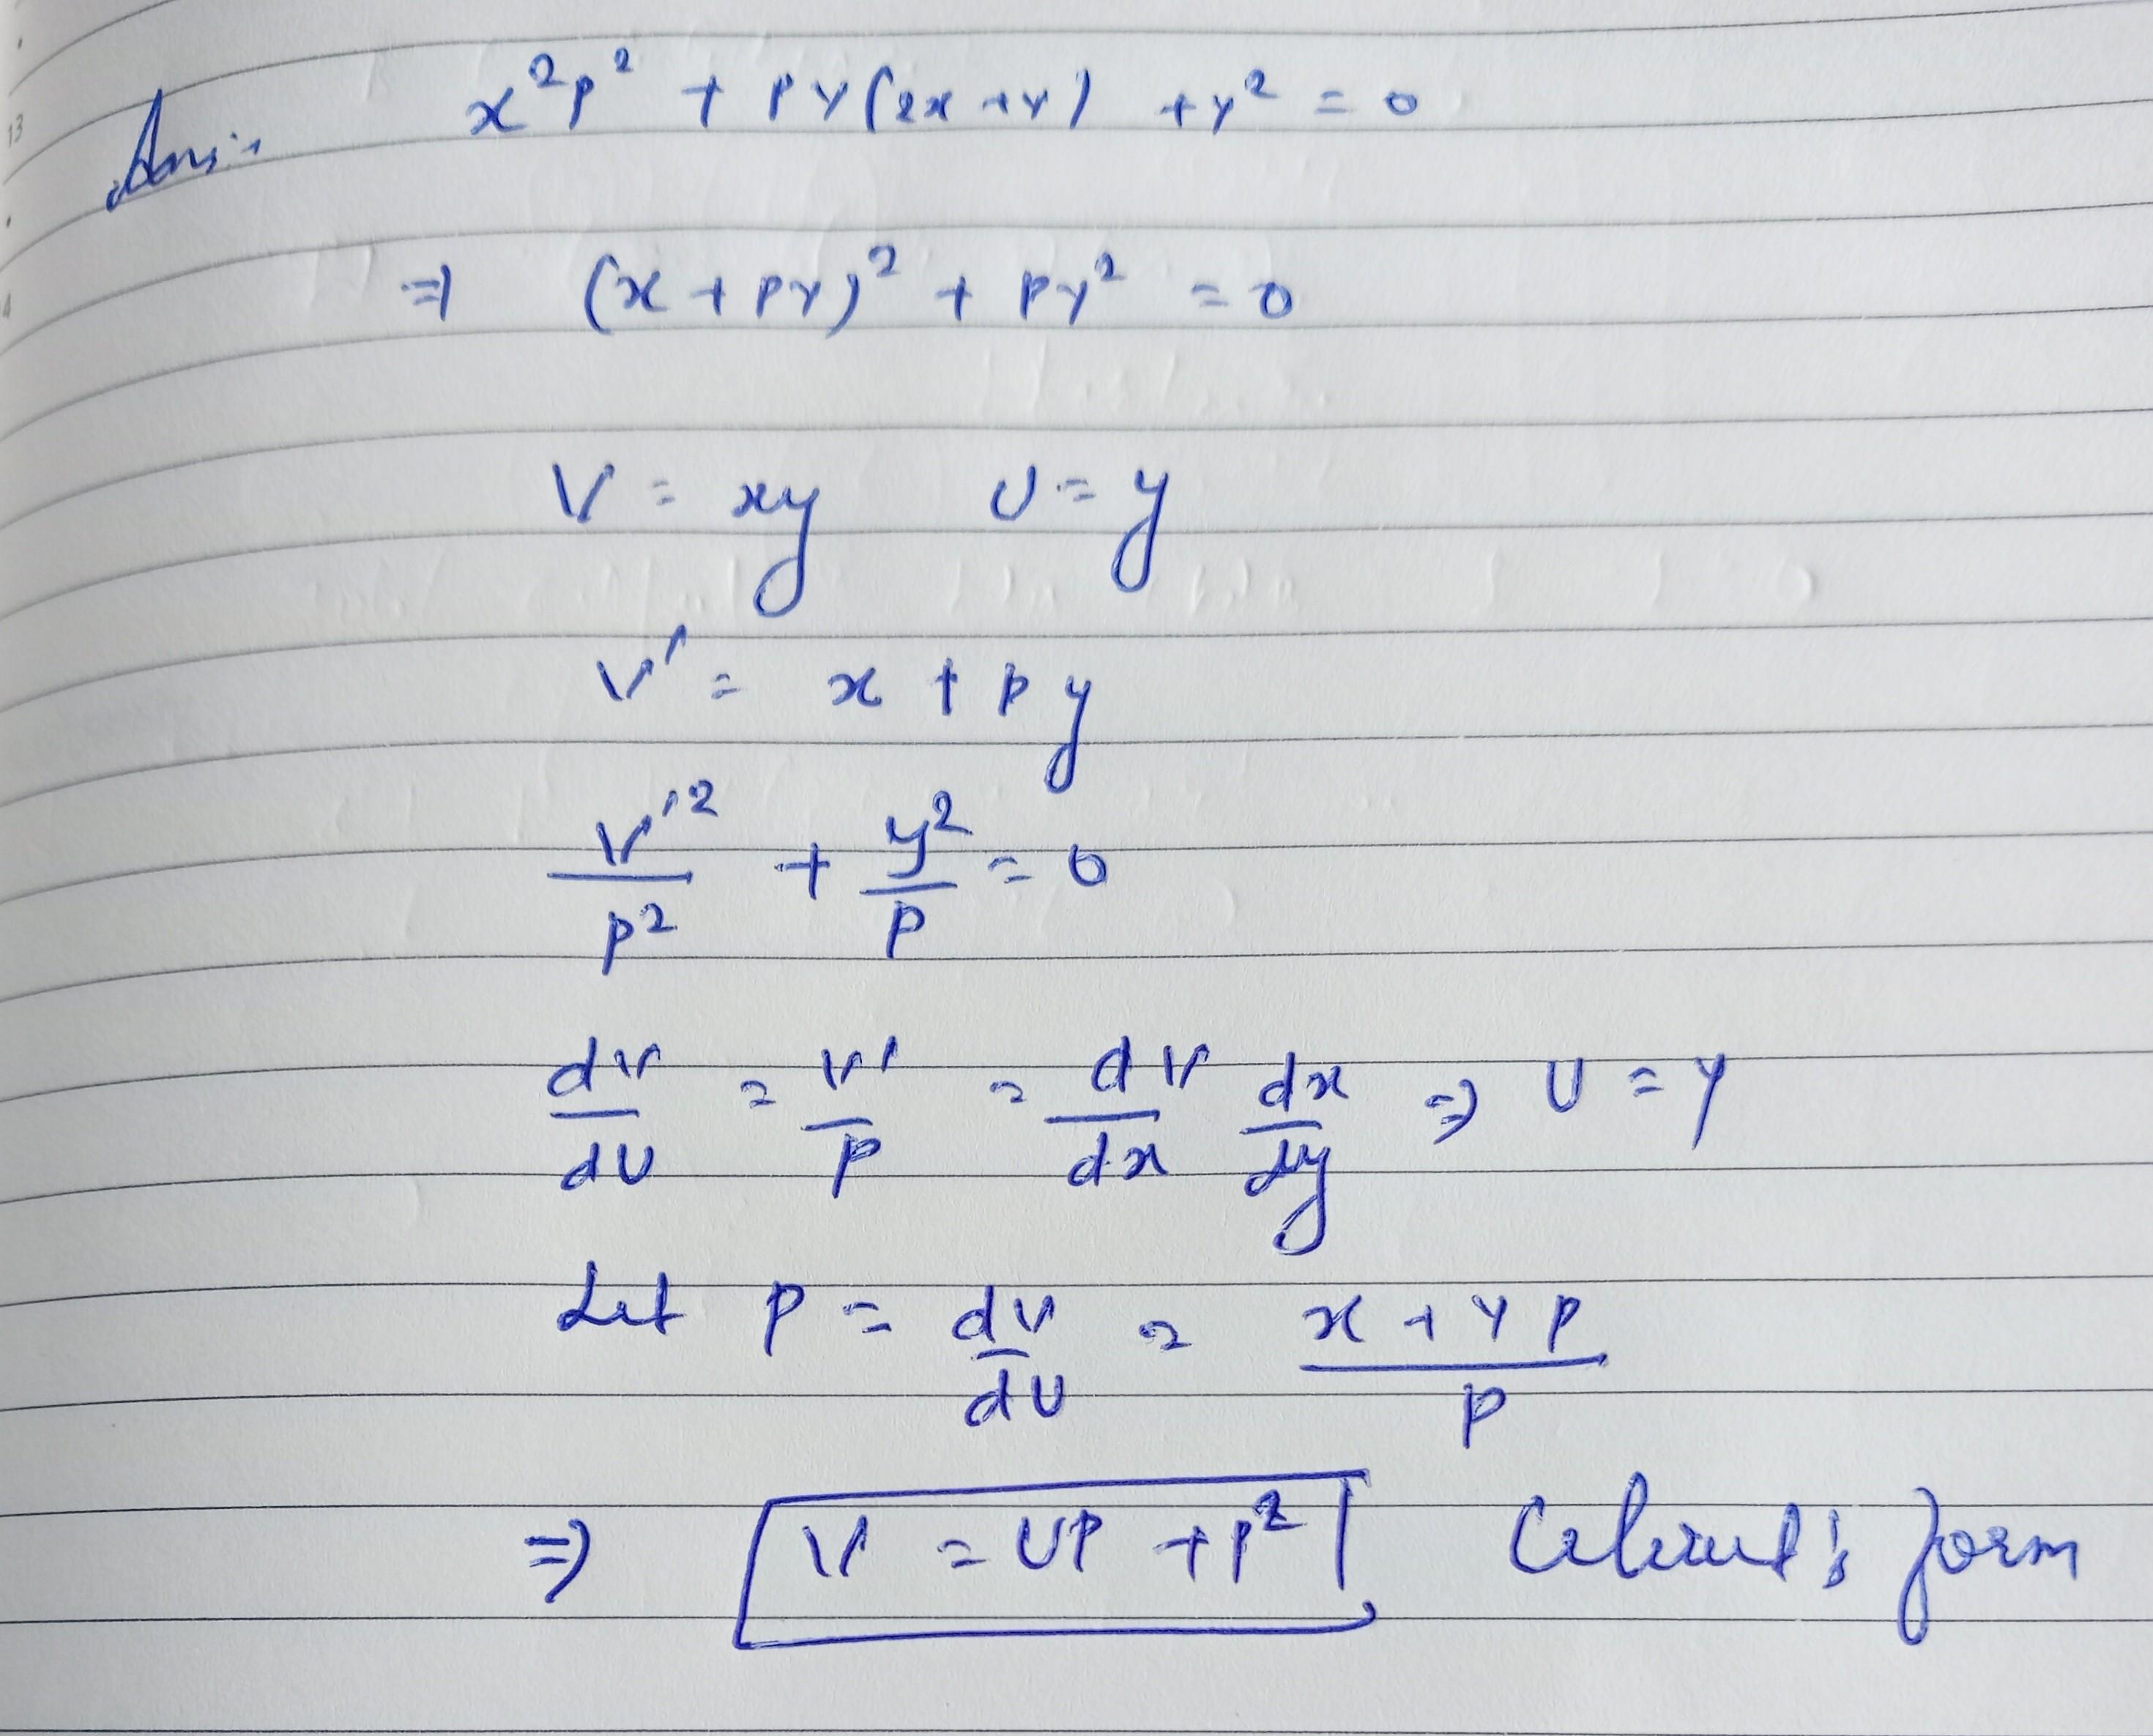 Ans:- x²p² + py(2x+y) + y² = 0
⇒ (x + py)² + py² = 0
V = xy U = y
V' = x + py
V'²/p² + y²/p = 0
dV/dU = V'/p = dV/dx dx/dy ⇒ U = y
Let P = dV/dU = x + yp / p
⇒ V = UP + P² form